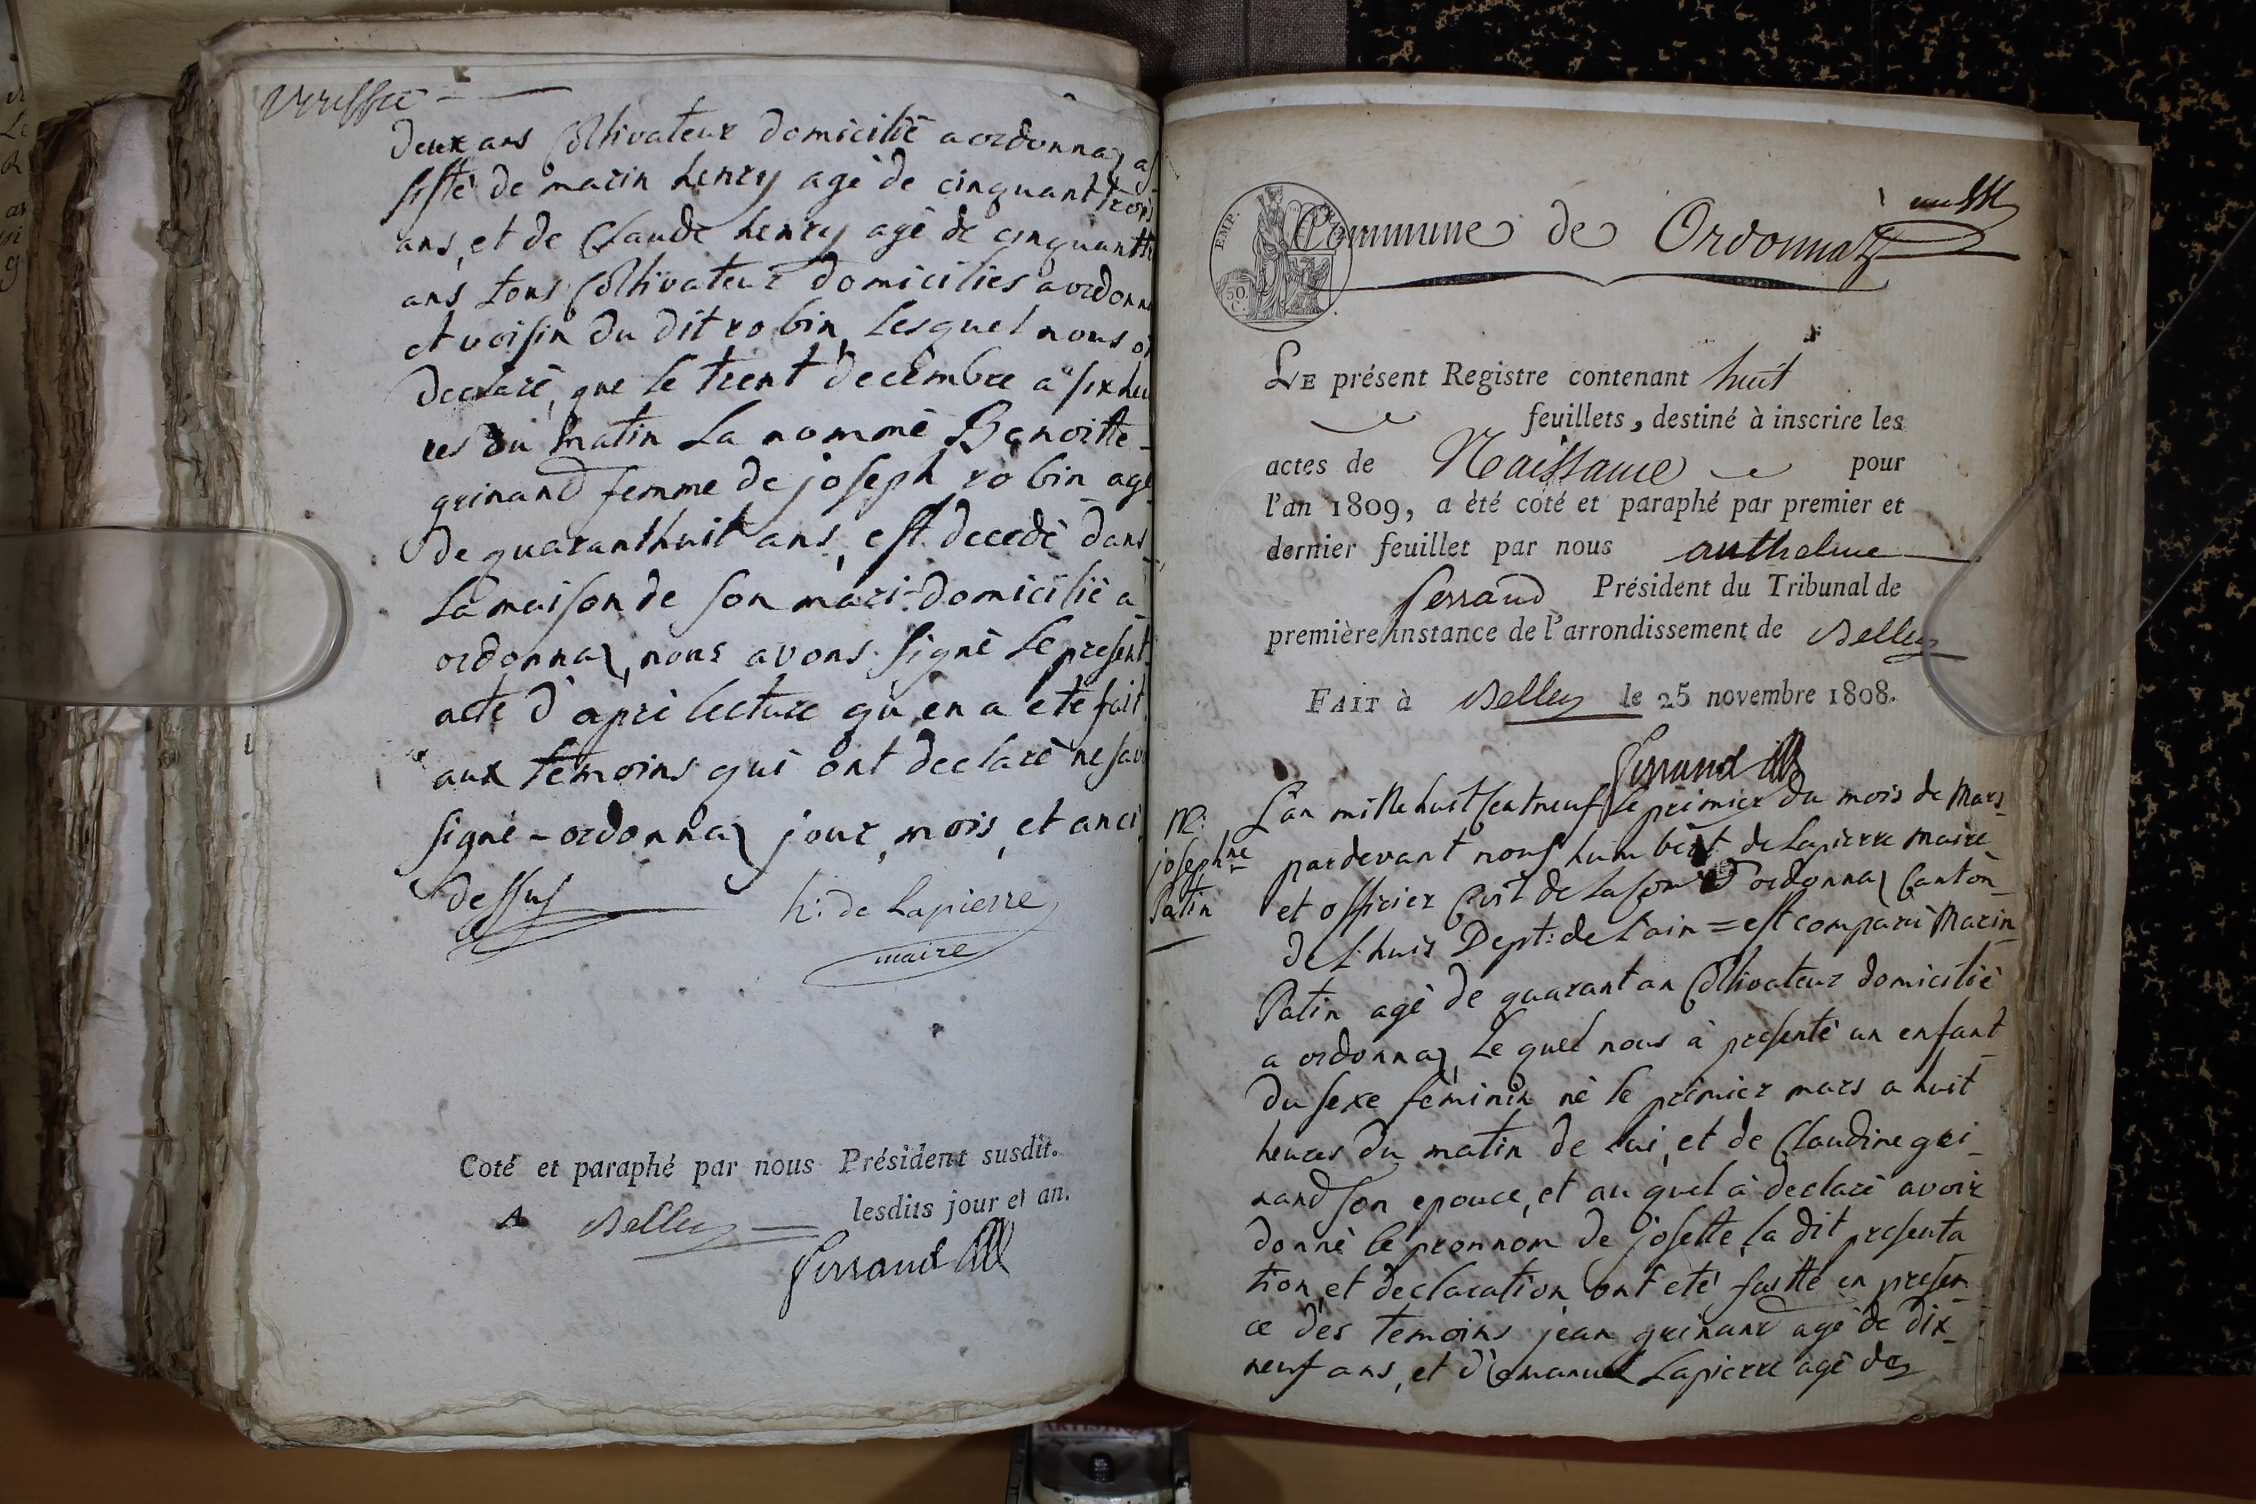 Veriffié
deux ans Coltivateur domicilié a ordonnaz as
sisté de marin henry agé de cinquant trois
ans, et de Claude henry agé de cinquantte
ans tous Coltivateur domiciliés a ordonna
et voisin du dit robin, lesquel nous on
declaré, que le trent decembre a six heu
res du matin La nommé Benoitte
grinand femme de joseph robin agé
de quaranthuit ans, est decedé dans
La maison de son mari domicilié a
ordonnaz, nous avons signé le present
acte d'apré lecture qu'en a eté fait
aux temoins qui ont declaré ne savoi
signé - ordonnaz jour, mois, et an ci
dessus
h: de Lapierre
maire
Coté et paraphé par nous Président susdit.
A Belley lesdits jour et an.
Ferrand
EMP. FR.
50 C.
Commune de Ordonnaz
LE présent Registre contenant huit
feuillets, destiné à inscrire les
actes de Naissance pour
l'an 1809, a été coté et paraphé par premier et
dernier feuillet par nous anthelme
ferrand Président du Tribunal de
première instance de l'arrondissement de Belley
FAIT à Belley le 25 novembre 1808.
Ferrand
L'an mille huit cent neuf le premier du mois de Mars
pardevant nous humbert de Lapierre maire
et officier Civil de la Com: d'ordonnaz Canton
de L'huis Dept: de L'ain = est comparu Marin
Patin agé de quarant an Coltivateur domicilié
a ordonnaz, le quel nous à presenté un enfant
du sexe feminin né le premier mars a huit
heures du matin de lui, et de Claudine gri-
nand son epouce, et au quel à declaré avoir
donné le pronnom de josette, la dit presenta
tion, et declaration ont eté faitte en presen
ce des temoins jean grinand agé de dix-
neuf ans, et d'Emanuel Lapierre agé de
N:
josephne
Patin